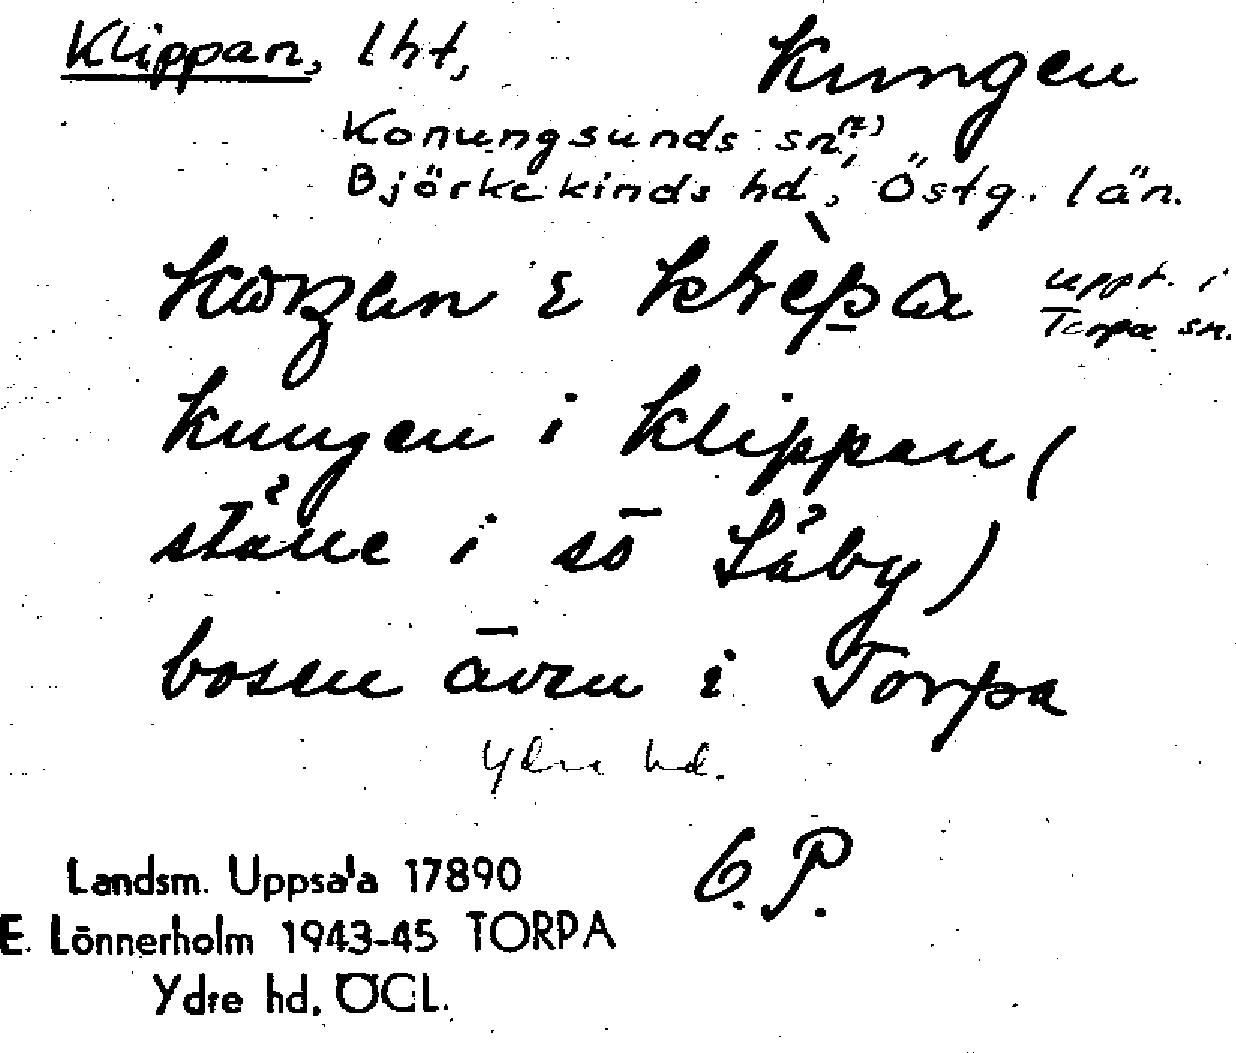 Klippan, lht, Kungen
Konungsunds sn,
Björkekinds hd, Östg. län.
uppt. i
Torpa sn.
kungen i klippan (
ståue i sö Låby)
bosen även i Torpa
Ydre hd.
G.P.
Landsm. Uppsala 17890
E. Lönnerholm 1943-45 TORPA
Ydre hd. ÖGL.